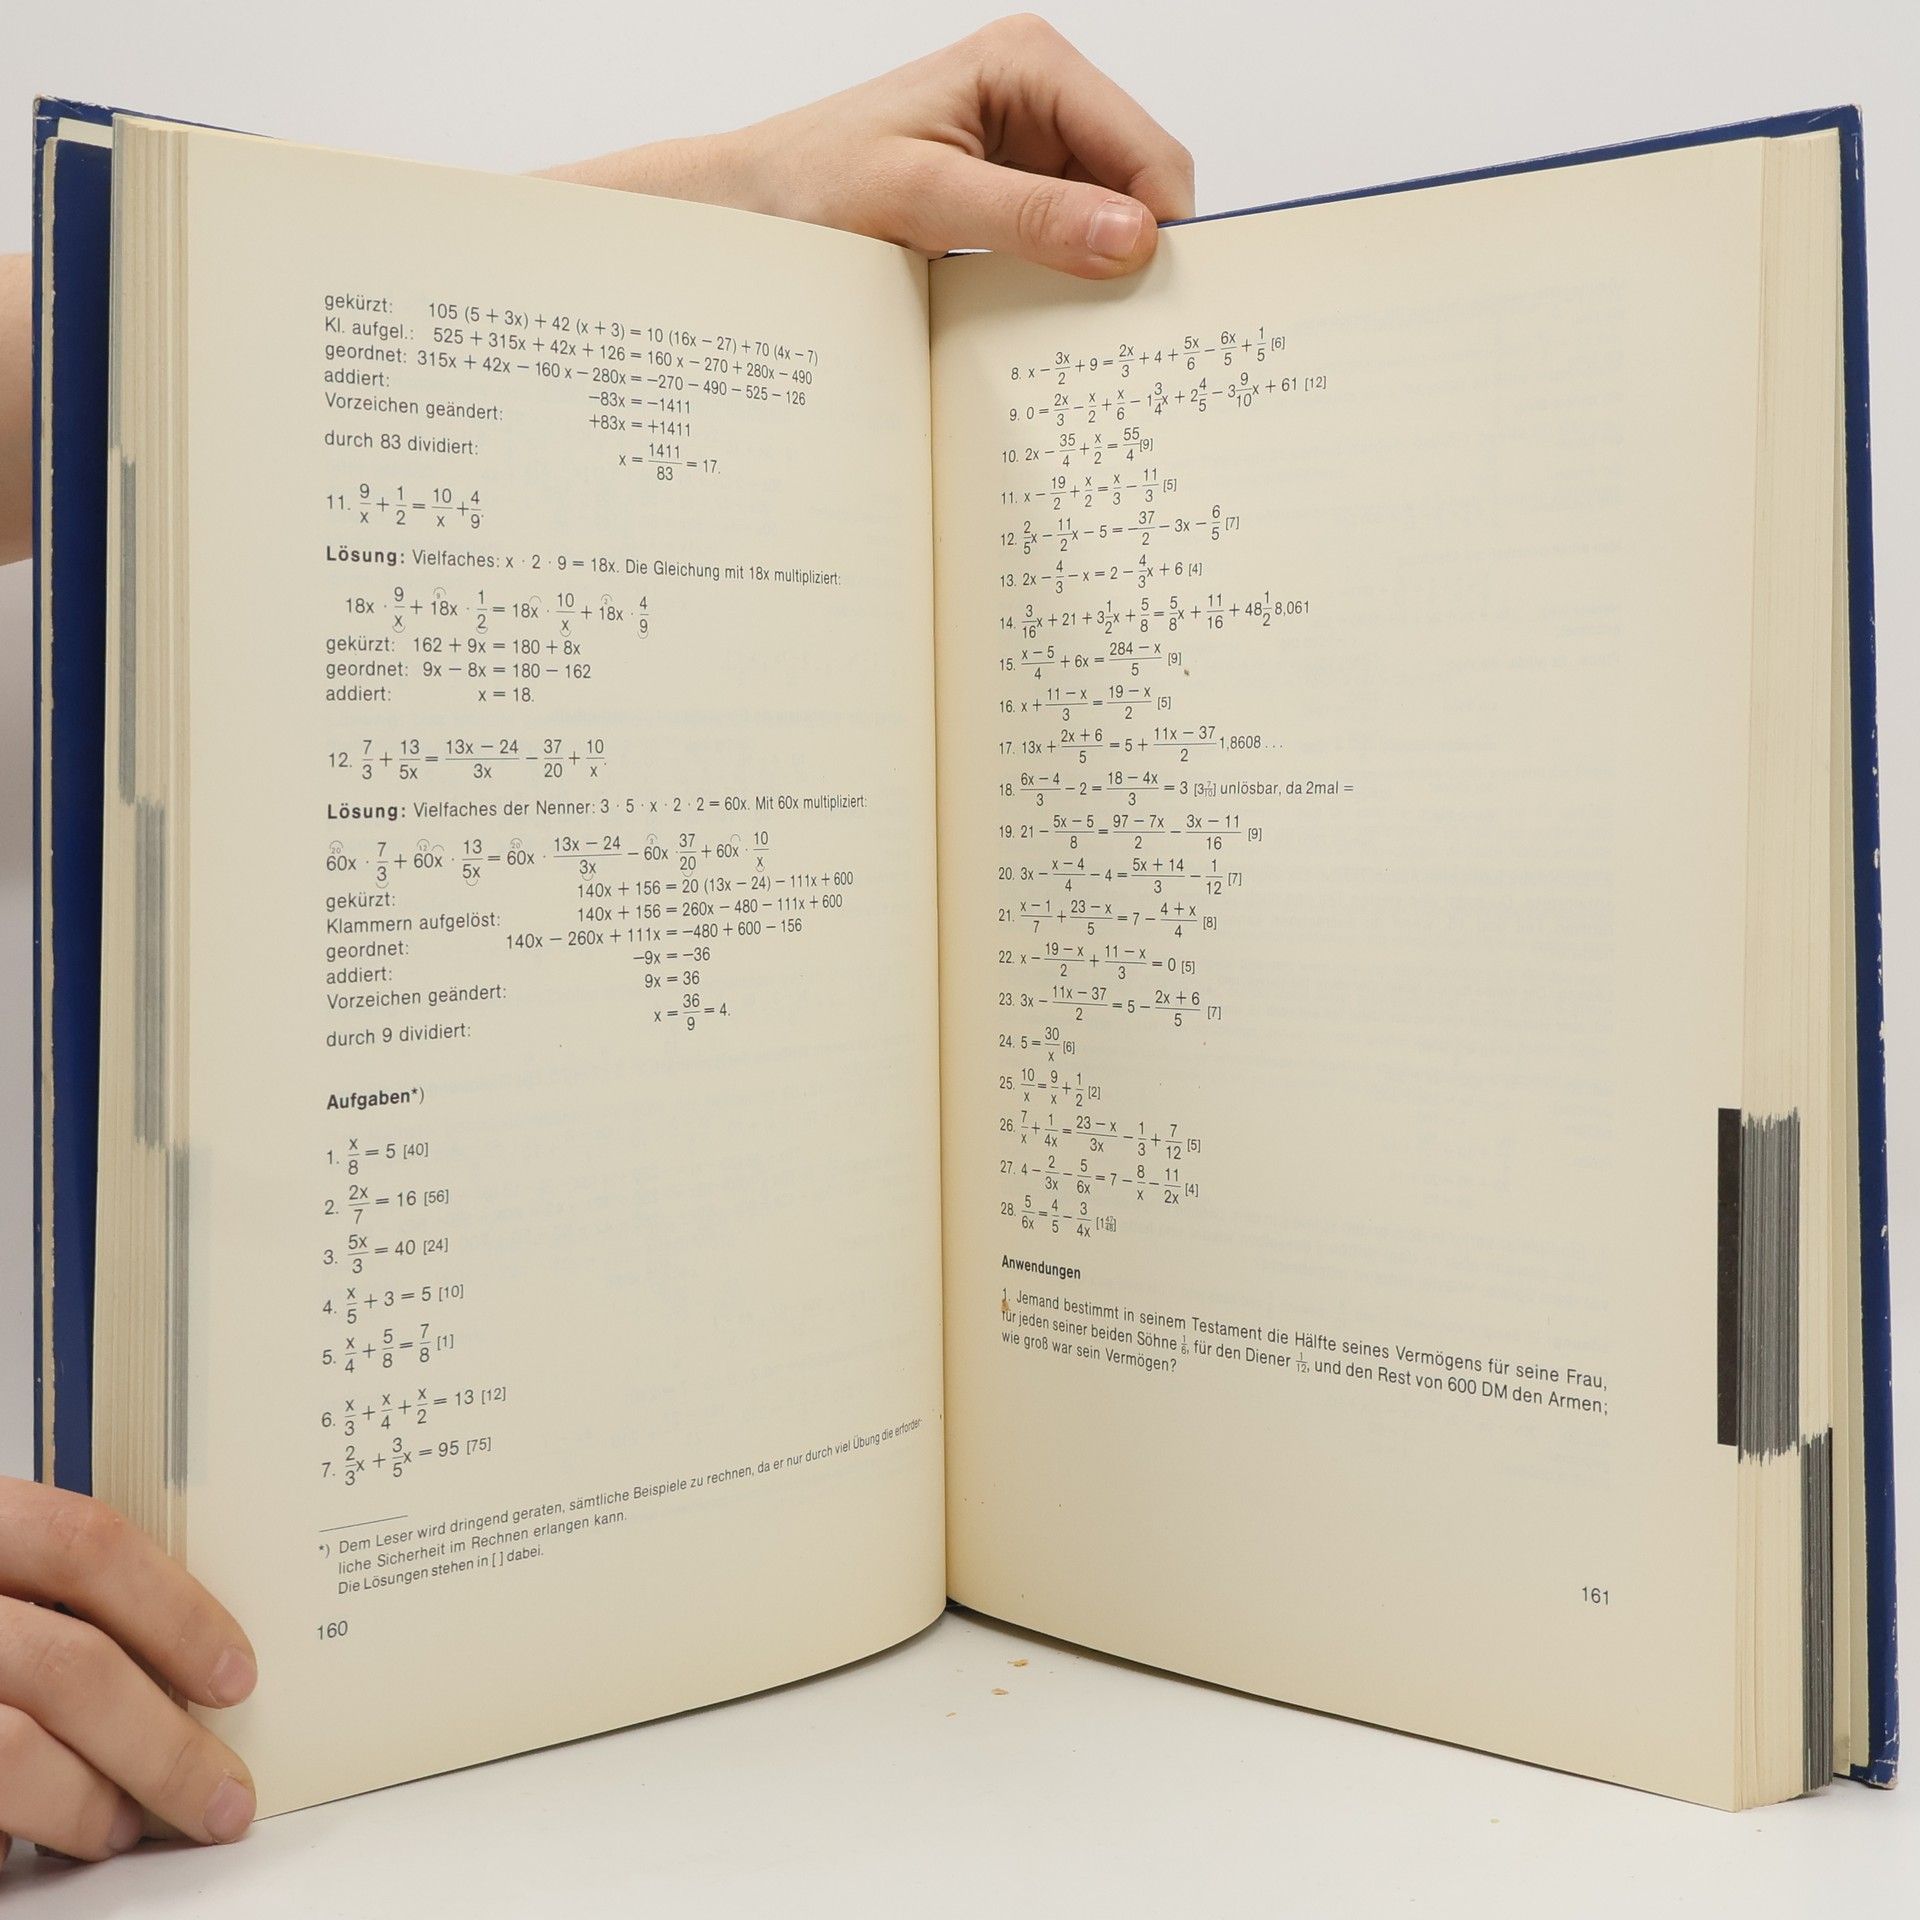 gekürzt: 105 (5 + 3x) + 42 (x + 3) = 10 (16x − 27) + 70 (4x − 7)
Kl. aufgel.: 525 + 315x + 42x + 126 = 160 x − 270 + 280x − 490
geordnet: 315x + 42x − 160 x − 280x = −270 − 490 − 525 − 126
addiert: −83x = −1411
Vorzeichen geändert: +83x = +1411
durch 83 dividiert: x = 1411/83 = 17.
11. 9/x + 1/2 = 10/x + 4/9.
Lösung: Vielfaches: x · 2 · 9 = 18x. Die Gleichung mit 18x multipliziert:
18x · 9/x + 18x · 1/2 = 18x · 10/x + 18x · 4/9
gekürzt: 162 + 9x = 180 + 8x
geordnet: 9x − 8x = 180 − 162
addiert: x = 18.
12. 7/3 + 13/5x = (13x − 24)/3x − 37/20 + 10/x.
Lösung: Vielfaches der Nenner: 3 · 5 · x · 2 · 2 = 60x. Mit 60x multipliziert:
60x · 7/3 + 60x · 13/5x = 60x · (13x − 24)/3x − 60x · 37/20 + 60x · 10/x
gekürzt: 140x + 156 = 20 (13x − 24) − 111x + 600
Klammern aufgelöst: 140x + 156 = 260x − 480 − 111x + 600
geordnet: 140x − 260x + 111x = −480 + 600 − 156
addiert: −9x = −36
Vorzeichen geändert: 9x = 36
durch 9 dividiert: x = 36/9 = 4.
Aufgaben*)
1. x/8 = 5 [40]
2. 2x/7 = 16 [56]
3. 5x/3 = 40 [24]
4. x/5 + 3 = 5 [10]
5. x/4 + 5/8 = 7/8 [1]
6. x/3 + x/4 + x/2 = 13 [12]
7. 2/3x + 3/5x = 95 [75]
*) Dem Leser wird dringend geraten, sämtliche Beispiele zu rechnen, da er nur durch viel Übung die erforder-
liche Sicherheit im Rechnen erlangen kann.
Die Lösungen stehen in [ ] dabei.
160
8. x − 3x/2 + 9 = 2x/3 + 4 + 5x/6 − 6x/5 + 1/5 [6]
9. 0 = 2x/3 − x/2 + x/6 − 1 3/4x + 2 4/5 − 3 9/10x + 61 [12]
10. 2x − 35/4 + x/2 = 55/4 [9]
11. x − 19/2 + x/2 = x/3 − 11/3 [5]
12. 2/5x − 11/2x − 5 = −37/2 − 3x − 6/5 [7]
13. 2x − 4/3 − x = 2 − 4/3x + 6 [4]
14. 3/16x + 21 + 3 1/2x + 5/8 = 5/8x + 11/16 + 48 1/2 8,061
15. (x − 5)/4 + 6x = (284 − x)/5 [9]
16. x + (11 − x)/3 = (19 − x)/2 [5]
17. 13x + (2x + 6)/5 = 5 + (11x − 37)/2 1,8608 . . .
18. (6x − 4)/3 − 2 = (18 − 4x)/3 = 3 [3 7/10] unlösbar, da 2mal =
19. 21 − (5x − 5)/8 = (97 − 7x)/2 − (3x − 11)/16 [9]
20. 3x − (x − 4)/4 − 4 = (5x + 14)/3 − 1/12 [7]
21. (x − 1)/7 + (23 − x)/5 = 7 − (4 + x)/4 [8]
22. x − (19 − x)/2 + (11 − x)/3 = 0 [5]
23. 3x − (11x − 37)/2 = 5 − (2x + 6)/5 [7]
24. 5 = 30/x [6]
25. 10/x = 9/x + 1/2 [2]
26. 7/x + 1/4x = (23 − x)/3x − 1/3 + 7/12 [5]
27. 4 − 2/3x − 5/6x = 7 − 8/x − 11/2x [4]
28. 5/6x = 4/5 − 3/4x [1 47/48]
Anwendungen
1. Jemand bestimmt in seinem Testament die Hälfte seines Vermögens für seine Frau,
für jeden seiner beiden Söhne 1/6, für den Diener 1/12, und den Rest von 600 DM den Armen;
wie groß war sein Vermögen?
161